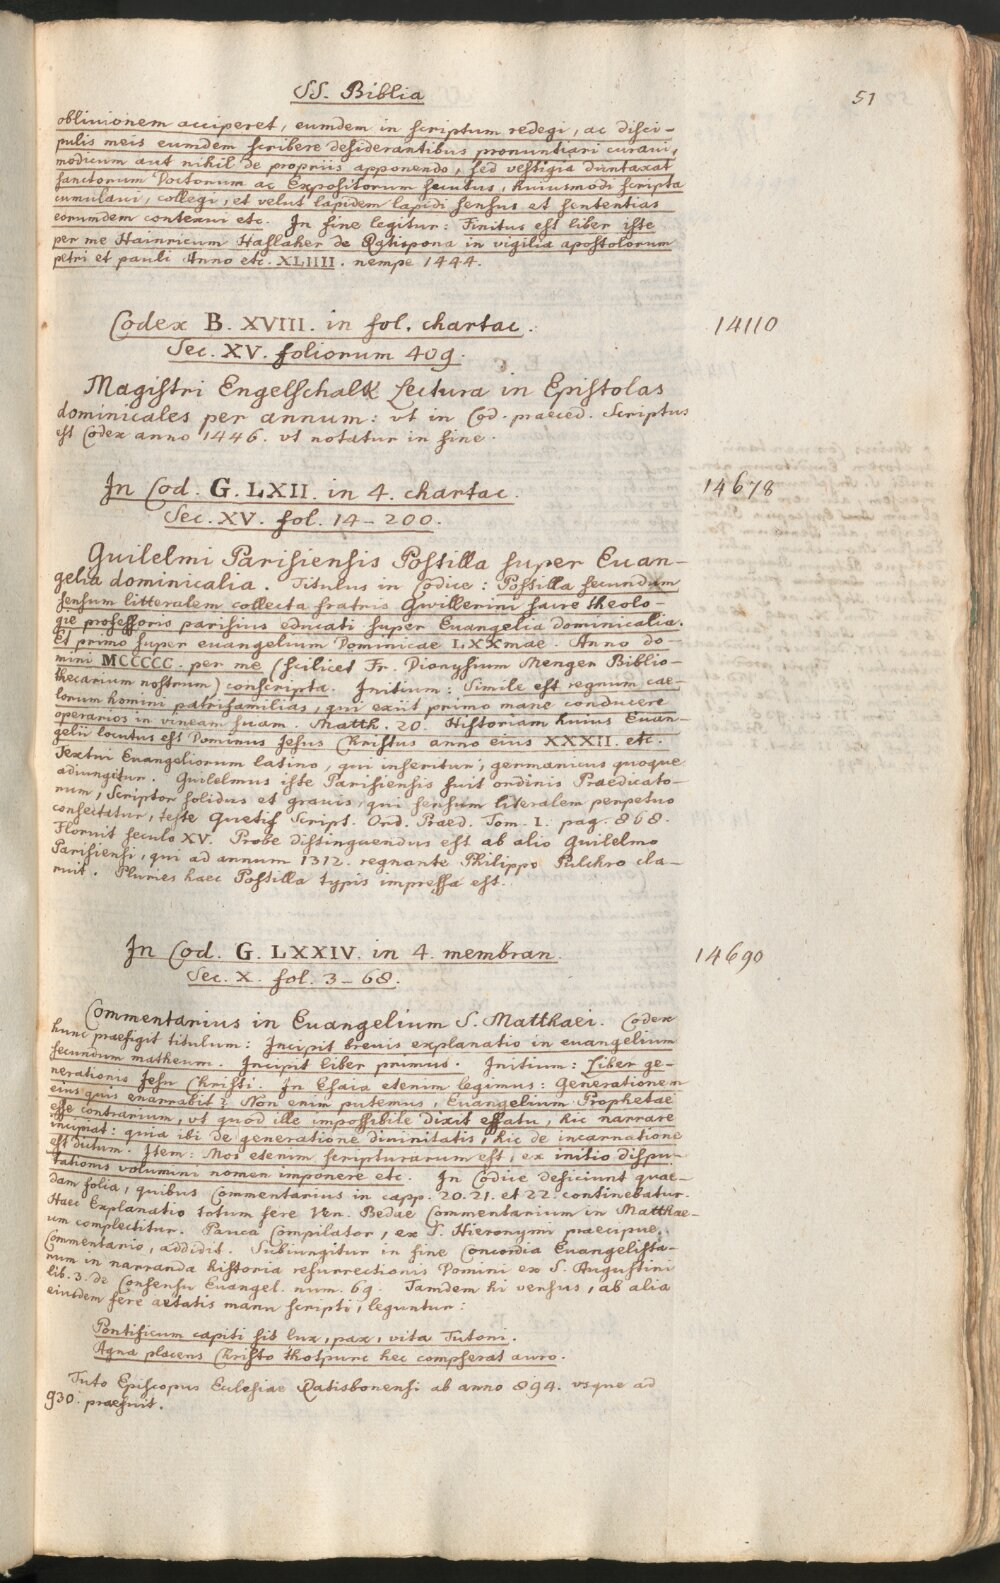 SS. Biblia
51
obliuionem acciperet, eumdem in scriptum redegi, ac disci-
pulis meis eumdem scribere desiderantibus pronuntiari curaui,
modicum aut nihil de propriis apponendo, sed vestigia duntaxat
sanctorum Doctorum ac Expositorum secutus, huiusmodi scripta
cumulaui, collegi, et velut lapidem lapidi sensus et sententias
eorumdem contexui etc. In fine legitur: Finitus est liber iste
per me Hainricum Haslaher de Ratispona in vigilia apostolorum
petri et pauli Anno etc. XLIIII. nempe 1444.
Codex B. XVIII. in fol. chartac.
14110
Sec. XV. foliorum 409.
Magistri Engelschalk Lectura in Epistolas
dominicales per annum: vt in Cod. praeced. Scriptus
est Codex anno 1446. vt notatur in fine.
In Cod. G. LXII. in 4. chartac.
14678
Sec. XV. fol. 14-200.
Guilelmi Parisiensis Postilla super Euan-
gelia dominicalia. Titulus in Codice: Postilla secundum
sensum litteralem collecta fratris Gwillerini sacre theolo-
gie professoris parisius educati super Euangelia dominicalia.
Et primo super euangelium Dominicae LXXmae. Anno do-
mini MCCCCC. per me (scilicet Fr. Dionysium Menger Biblio-
thecarium nostrum) conscripta. Initium: Simile est regnum cae-
lorum homini patrifamilias, qui exiit primo mane conducere
operarios in vineam suam. Matth. 20. Historiam huius Euan-
gelii locutus est Dominus Jesus Christus anno eius XXXII. etc.
Textui Euangeliorum latino, qui inseritur, germanicus quoque
adiungitur. Guilelmus iste Parisiensis fuit ordinis Praedicato-
rum, Scriptor solidus et grauis, qui sensum literalem perpetuo
consectatur, teste Quetif Script. Ord. Praed. Tom. I. pag. 868.
Floruit seculo XV. Probe distinguendus est ab alio Guilelmo
Parisiensi, qui ad annum 1312. regnante Philippo Pulchro cla-
ruit. Pluries haec Postilla typis impressa est.
In Cod. G. LXXIV. in 4. membran.
14690
Sec. X. fol. 3-68.
Commentarius in Euangelium S. Matthaei. Codex
hunc praefigit titulum: Incipit breuis explanatio in euangelium
secundum matheum. Incipit liber primus. Initium: Liber ge-
nerationis Jesu Christi. In Esaia etenim legimus: Generationem
eius quis enarrabit? Non enim putemus, Euangelium Prophetae
esse contrarium, vt quod ille impossibile dixit effatu, hic narrare
incipiat: quia ibi de generatione diuinitatis, hic de incarnatione
est dictum. Item: Mos etenim scripturarum est, ex initio dispu-
tationis volumini nomen imponere etc. In Codice deficiunt quae-
dam folia, quibus Commentarius in capp. 20. 21. et 22. continebatur.
Haec Explanatio totum fere Ven. Bedae Commentarium in Matthae-
um complectitur. Pauca Compilator, ex S. Hieronymi praecipue
Commentario, addidit. Subiungitur in fine Concordia Euangelista-
rum in narranda historia resurrectionis Domini ex S. Augustini
lib. 3. de Consensu Euangel. num. 69. Tamdem hi versus, ab alia
eiusdem fere aetatis manu scripti, leguntur:
Pontificum capiti sit lux, pax, vita Tutoni.
Agna placens Christo thotpurc hec compserat auro.
Tuto Episcopus Ecclesiae Ratisbonensi ab anno 894. vsque ad
930. praefuit.